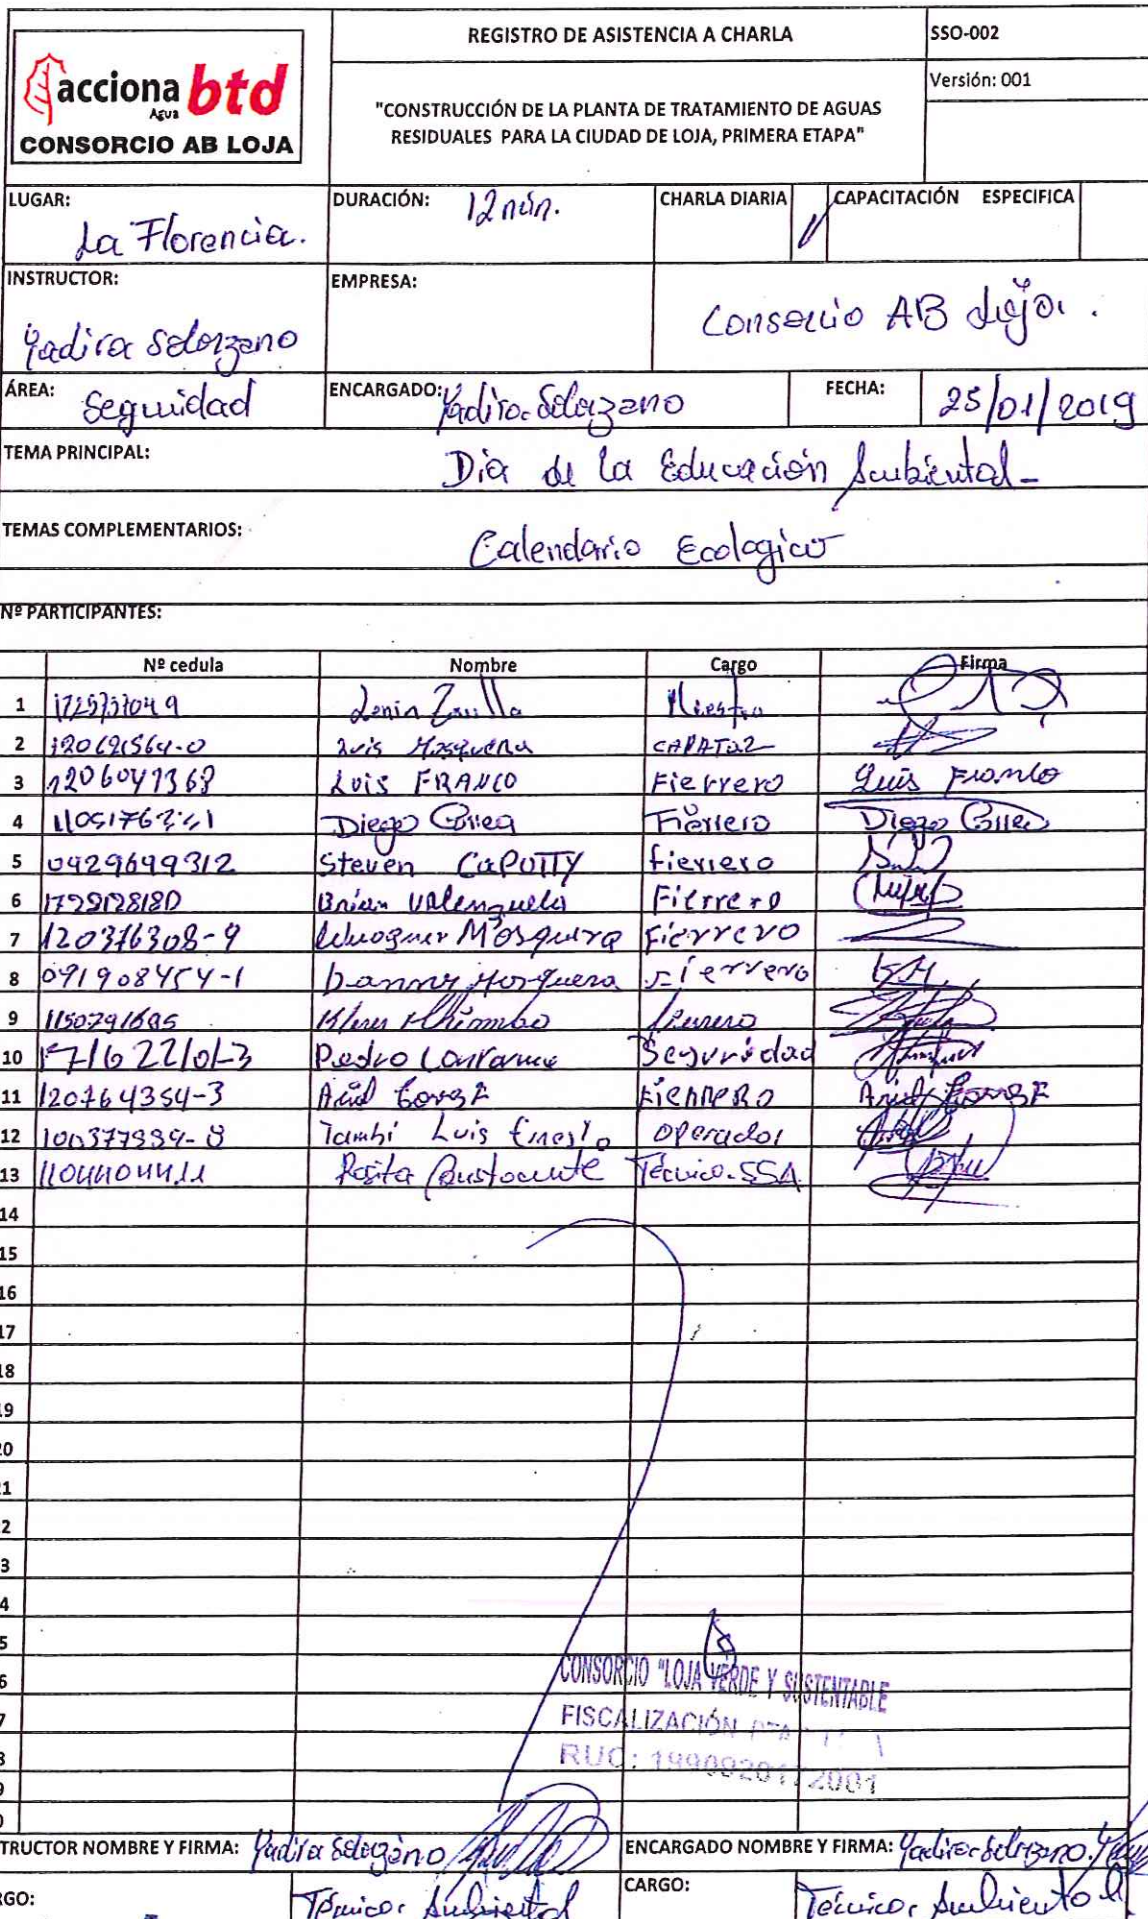 REGISTRO DE ASISTENCIA A CHARLA
SSO-002
acciona Agua btd
CONSORCIO AB LOJA
Versión: 001
"CONSTRUCCIÓN DE LA PLANTA DE TRATAMIENTO DE AGUAS
RESIDUALES PARA LA CIUDAD DE LOJA, PRIMERA ETAPA"
LUGAR: La Florencia.
DURACIÓN: 12 min.
CHARLA DIARIA
CAPACITACIÓN ESPECIFICA
INSTRUCTOR: Yadira Solorzano
EMPRESA: Consorcio AB Loja.
ÁREA: Seguridad
ENCARGADO: Yadira Solorzano
FECHA: 25/01/2019
TEMA PRINCIPAL: Día de la Educación Ambiental
TEMAS COMPLEMENTARIOS: Calendario Ecologico
Nº PARTICIPANTES:
Nº cedula Nombre Cargo Firma
1 Lenin Maestro
2 Luis Mosquera CAPATAZ
3 1206047368 Luis FRANCO Fierrero Luis Franco
4 Diego Correa Fierrero Diego Correa
5 0929699312 Steven CAPUTTY fierrero
6 Brian Valenzuela Fierrero
7 120376308-9 Mosquera Fierrero
8 091908454-1 Danny Mosquera Fierrero
9
10 Pedro Seguridad
11 120764354-3 FIERRERO
12 100377939-8 Tambi Luis Ernesto Operador
13 Rosita Bustamante Técnico SSA
14
15
16
17
18
19
20
21
2
3
4
5
6
7
8
9
0
CONSORCIO "LOJA VERDE Y SUSTENTABLE
FISCALIZACIÓN
RUC:
TRUCTOR NOMBRE Y FIRMA: Yadira Solorzano
ENCARGADO NOMBRE Y FIRMA: Yadira Solorzano.
RGO: Técnico Ambiental
CARGO: Técnico Ambiental